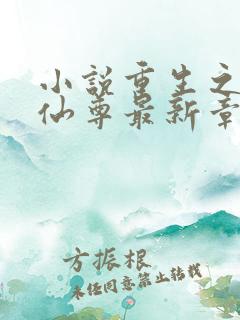 小说重生之
仙尊最新章
方振根
未经同意禁止转载